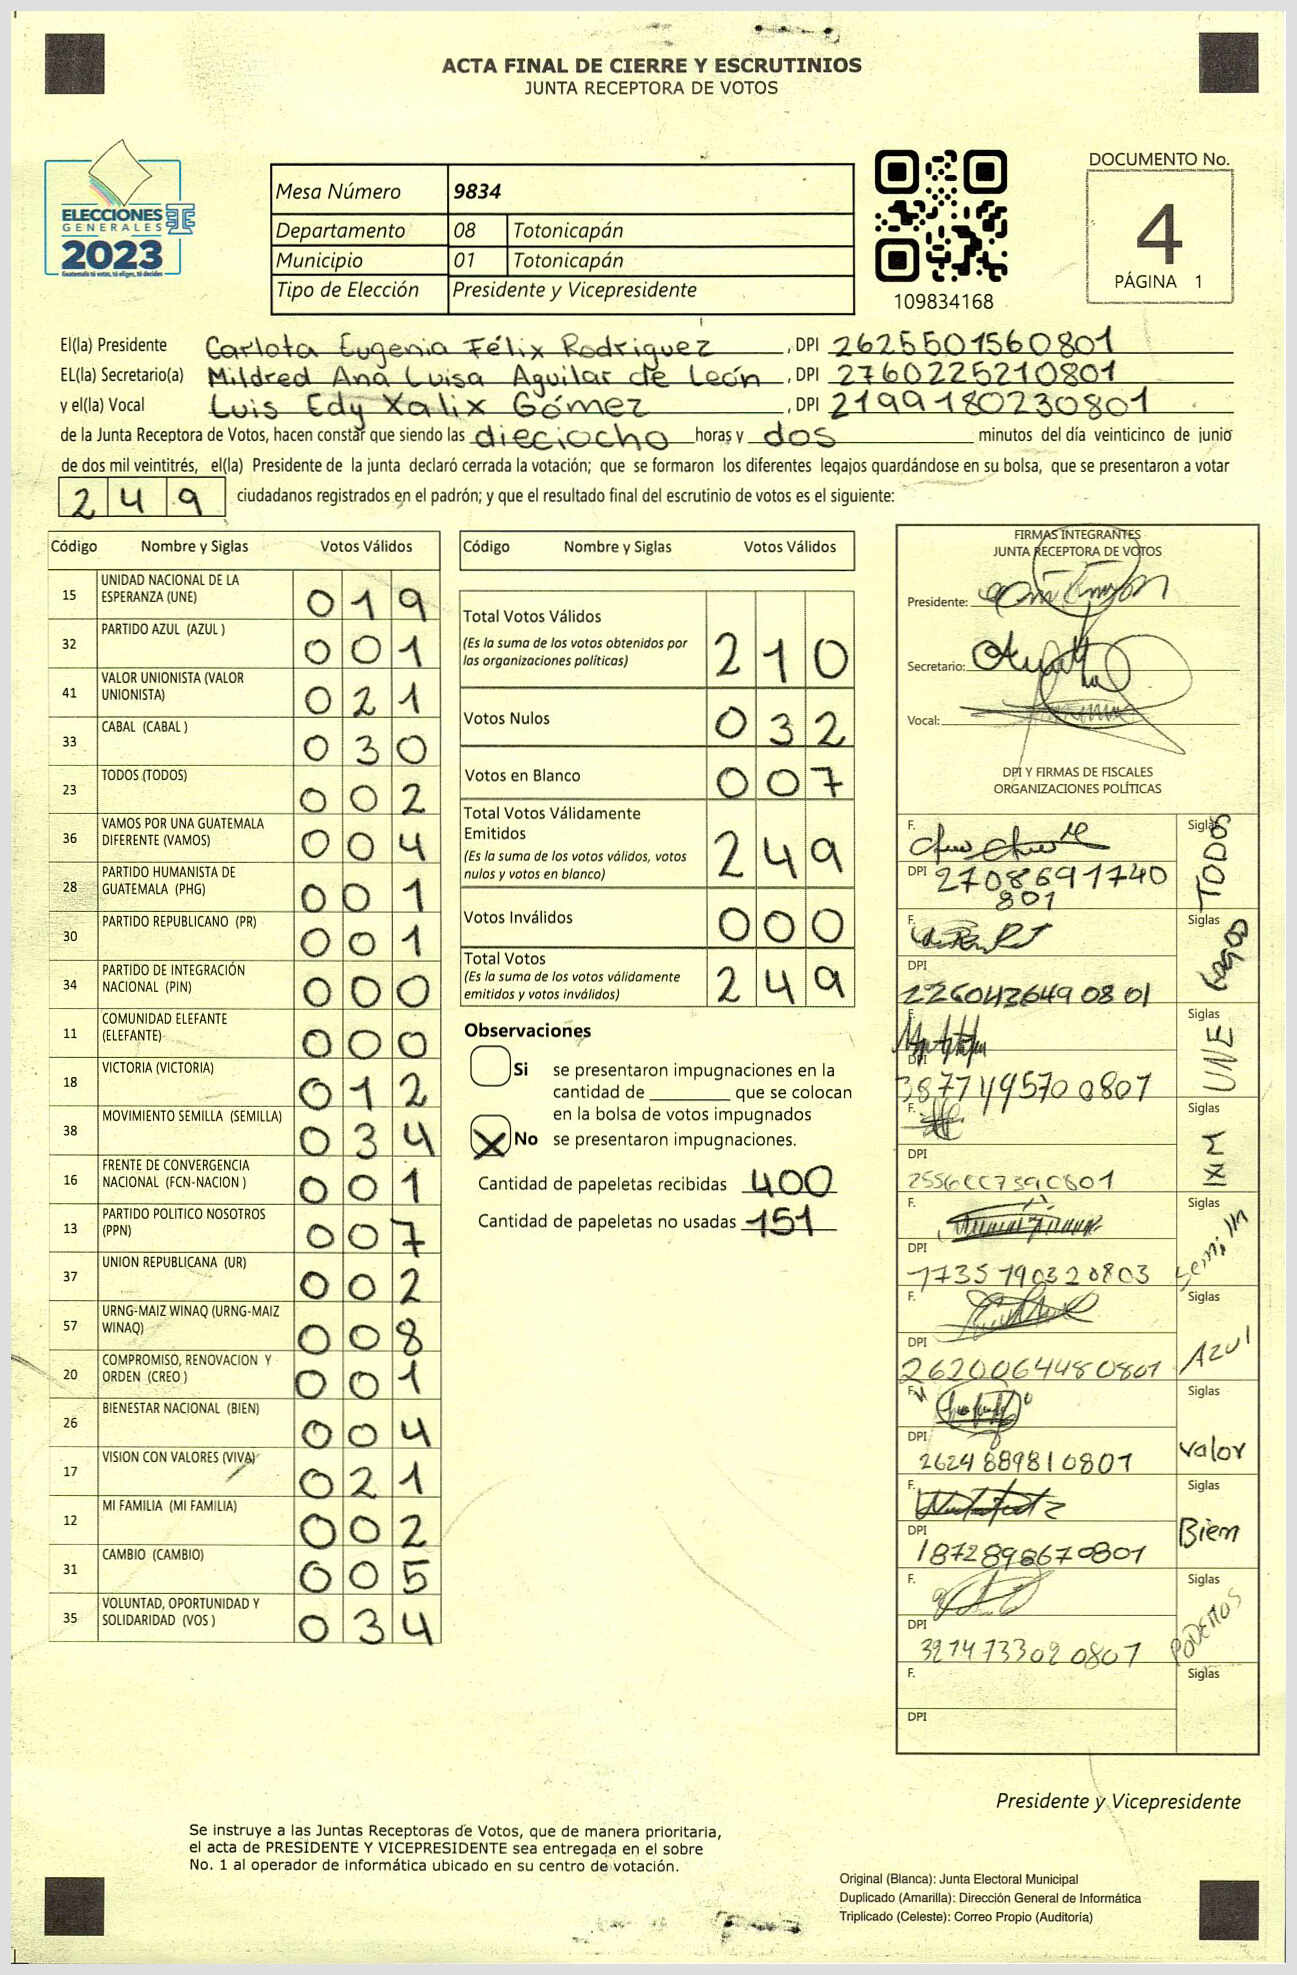 ACTA FINAL DE CIERRE Y ESCRUTINIOS
JUNTA RECEPTORA DE VOTOS
ELECCIONES
GENERALES
2023
Guatemala tú votas, tú eliges, tú decides
Mesa Número 9834
Departamento 08 Totonicapán
Municipio 01 Totonicapán
Tipo de Elección Presidente y Vicepresidente
109834168
DOCUMENTO No.
4
PÁGINA 1
El(la) Presidente Carlota Eugenia Félix Rodriguez, DPI 2625501560801
EL(la) Secretario(a) Mildred Ana Luisa Aguilar de León, DPI 2760225210801
y el(la) Vocal Luis Edy Xalix Gómez, DPI 2199180230801
de la Junta Receptora de Votos, hacen constar que siendo las dieciocho horas y dos minutos del día veinticinco de junio
de dos mil veintitrés, el(la) Presidente de la junta declaró cerrada la votación; que se formaron los diferentes legajos quardándose en su bolsa, que se presentaron a votar
249 ciudadanos registrados en el padrón; y que el resultado final del escrutinio de votos es el siguiente:
Código Nombre y Siglas Votos Válidos
15 UNIDAD NACIONAL DE LA
ESPERANZA (UNE) 019
32 PARTIDO AZUL (AZUL ) 001
41 VALOR UNIONISTA (VALOR
UNIONISTA) 021
33 CABAL (CABAL ) 030
23 TODOS (TODOS) 002
36 VAMOS POR UNA GUATEMALA
DIFERENTE (VAMOS) 004
28 PARTIDO HUMANISTA DE
GUATEMALA (PHG) 001
30 PARTIDO REPUBLICANO (PR) 001
34 PARTIDO DE INTEGRACIÓN
NACIONAL (PIN) 000
11 COMUNIDAD ELEFANTE
(ELEFANTE) 000
18 VICTORIA (VICTORIA) 012
38 MOVIMIENTO SEMILLA (SEMILLA) 034
16 FRENTE DE CONVERGENCIA
NACIONAL (FCN-NACION ) 001
13 PARTIDO POLITICO NOSOTROS
(PPN) 007
37 UNION REPUBLICANA (UR) 002
57 URNG-MAIZ WINAQ (URNG-MAIZ
WINAQ) 008
20 COMPROMISO, RENOVACION Y
ORDEN (CREO ) 001
26 BIENESTAR NACIONAL (BIEN) 004
17 VISION CON VALORES (VIVA) 021
12 MI FAMILIA (MI FAMILIA) 002
31 CAMBIO (CAMBIO) 005
35 VOLUNTAD, OPORTUNIDAD Y
SOLIDARIDAD (VOS ) 034
Código Nombre y Siglas Votos Válidos
Total Votos Válidos
(Es la suma de los votos obtenidos por
las organizaciones políticas) 210
Votos Nulos 032
Votos en Blanco 007
Total Votos Válidamente
Emitidos
(Es la suma de los votos válidos, votos
nulos y votos en blanco) 249
Votos Inválidos 000
Total Votos
(Es la suma de los votos válidamente
emitidos y votos inválidos) 249
Observaciones
Si se presentaron impugnaciones en la
cantidad de ________ que se colocan
en la bolsa de votos impugnados
X No se presentaron impugnaciones.
Cantidad de papeletas recibidas 400
Cantidad de papeletas no usadas 151
FIRMAS INTEGRANTES
JUNTA RECEPTORA DE VOTOS
Presidente:
Secretario:
Vocal:
DPI Y FIRMAS DE FISCALES
ORGANIZACIONES POLÍTICAS
F. Siglas TODOS
DPI 2708691740
801
F. Siglas
DPI 2260426490801
F. Siglas UNE
DPI
F. Siglas
DPI
F. Siglas Semilla
DPI
F. Siglas Azul
DPI 2620064480801
F. Siglas Valor
DPI 2624889810801
F. Siglas Bien
DPI 1872898670801
F. Siglas PODEMOS
DPI 3214733020801
F. Siglas
DPI
Presidente y Vicepresidente
Se instruye a las Juntas Receptoras de Votos, que de manera prioritaria,
el acta de PRESIDENTE Y VICEPRESIDENTE sea entregada en el sobre
No. 1 al operador de informática ubicado en su centro de votación.
Original (Blanca): Junta Electoral Municipal
Duplicado (Amarilla): Dirección General de Informática
Triplicado (Celeste): Correo Propio (Auditoría)